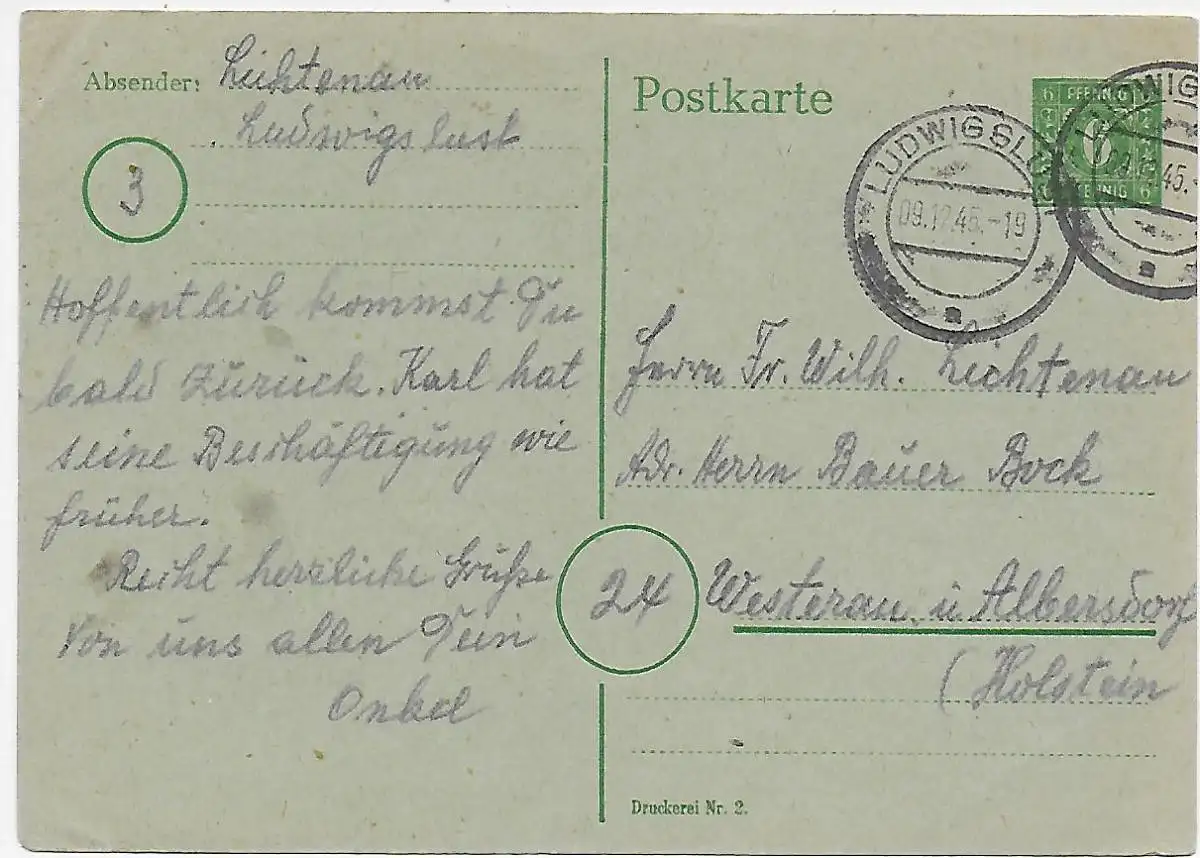 Absender: Lichtenau
Ludwigslust
3
Hoffentlich kommst Du
bald zurück. Karl hat
seine Beschäftigung wie
früher.
Recht herzliche Grüße
Von uns allen Dein
Onkel
Postkarte
6 PFENNIG 6
PFENNIG 6
LUDWIGSLUST
09.12.45.-19
a
LUDWIGS
09.12.45.-
a
Herrn Fr. Wilh. Lichtenau
Adr. Herrn Bauer Bock
24 Westerau, ü Albersdorf
(Holstein
Druckerei Nr. 2.